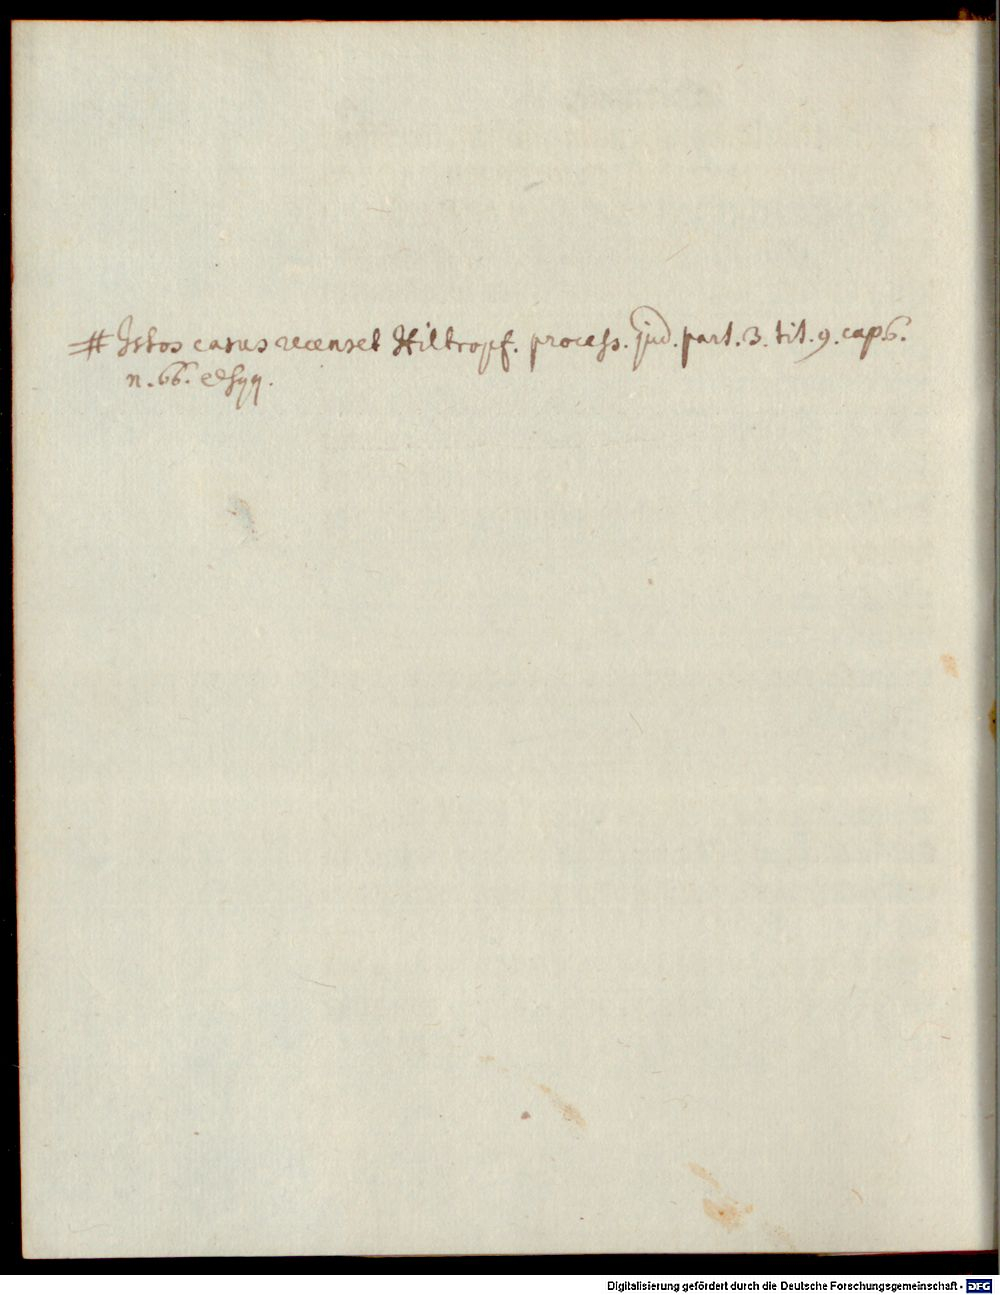 # Istos casus recenset Hiltropf. process. jud. part. 3. tit. 9. cap 6.
n. 66. et sqq.
Digitalisierung gefördert durch die Deutsche Forschungsgemeinschaft - DFG